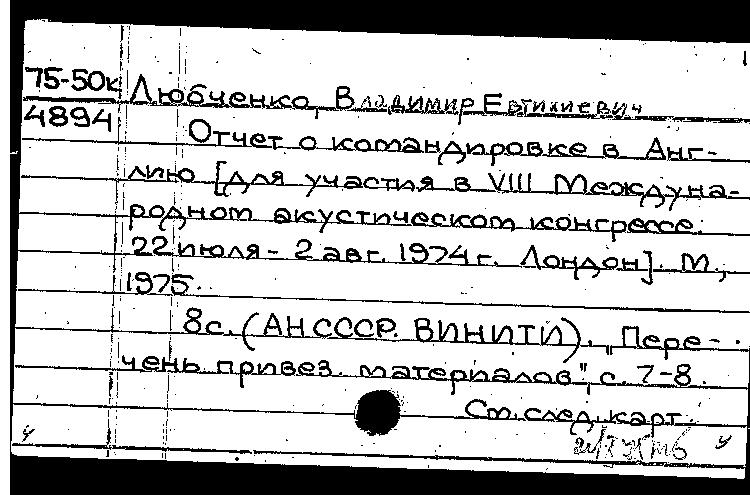 1
75-50к
4894
Любченко, Владимир Евтихиевич
Отчет о командировке в Анг-
лию [для участия в VIII Междуна-
родном акустическом конгрессе.
22 июля - 2 авг. 1974 г. Лондон]. М.,
1975.
8с. (АН СССР. ВИНИТИ). „Пере-
чень привез. материалов", с. 7-8.
См. след. карт.
ч
у